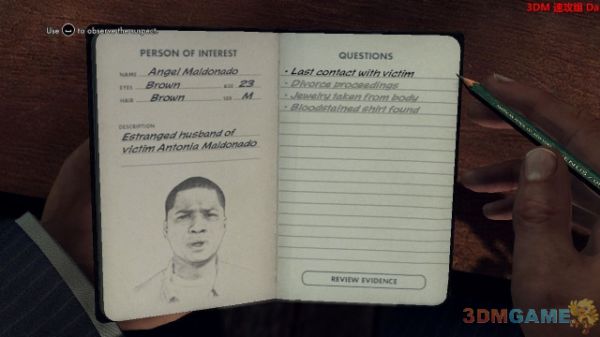 3DM 速攻组 Da
Use to observe the suspect.
PERSON OF INTEREST
NAME Angel Maldonado
EYES Brown AGE 23
HAIR Brown SEX M
DESCRIPTION
Estranged husband of
victim Antonia Maldonado
QUESTIONS
• Last contact with victim
• Divorce proceedings
• Jewelry taken from body
• Bloodstained shirt found
REVIEW EVIDENCE
3DMGAME